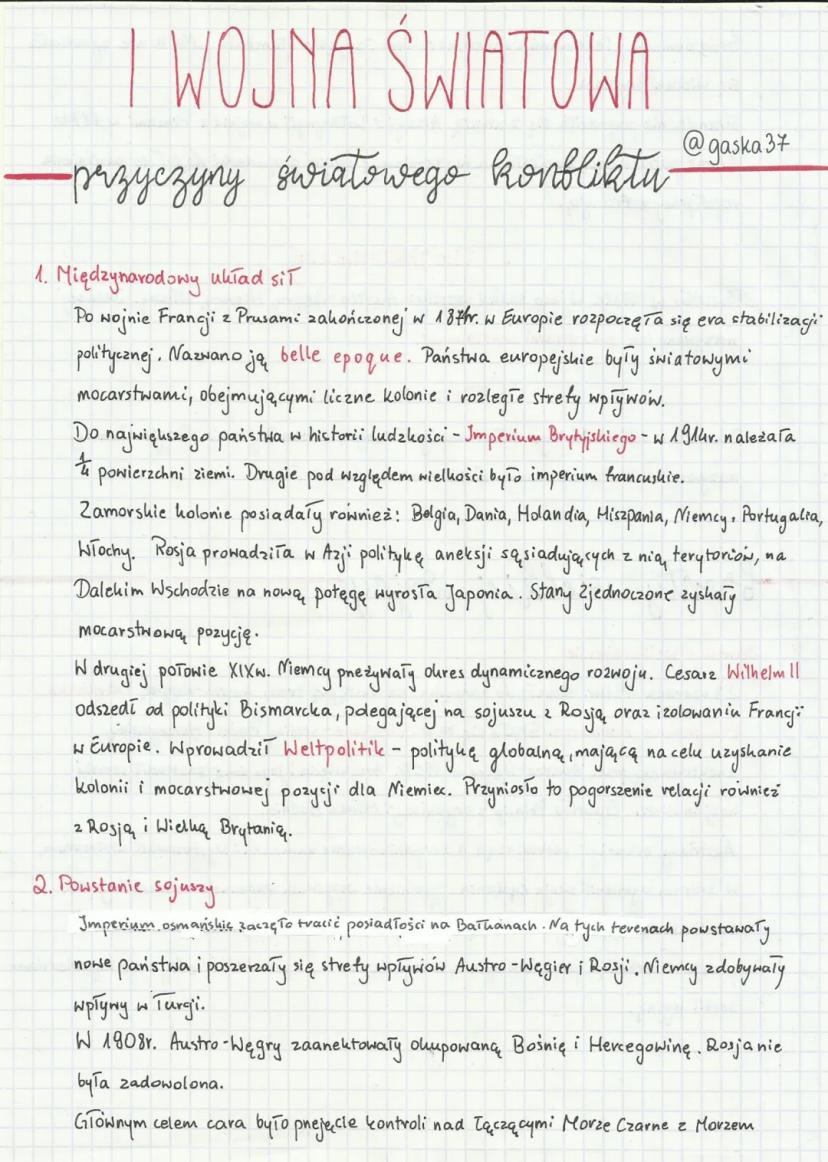 I WOJNA ŚWIATOWA
przyczyny światowego konfliktu
@gaska37
1. Międzynarodowy układ sił
Po wojnie Francji z Prusami zakończonej w 1871r. w Europie rozpoczęła się era stabilizacji
politycznej. Nazwano ją belle epoque. Państwa europejskie były światowymi
mocarstwami, obejmującymi liczne kolonie i rozległe strefy wpływów.
Do największego państwa w historii ludzkości - Imperium Brytyjskiego - w 1914r. należała
1/4 powierzchni ziemi. Drugie pod względem wielkości było imperium francuskie.
Zamorskie kolonie posiadały również: Belgia, Dania, Holandia, Hiszpania, Niemcy, Portugalia,
Włochy. Rosja prowadziła w Azji politykę aneksji sąsiadujących z nią terytoriów, na
Dalekim Wschodzie na nową potęgę wyrosła Japonia. Stany Zjednoczone zyskały
mocarstwową pozycję.
W drugiej połowie XIXw. Niemcy przeżywały okres dynamicznego rozwoju. Cesarz Wilhelm II
odszedł od polityki Bismarcka, polegającej na sojuszu z Rosją oraz izolowaniu Francji
w Europie. Wprowadził Weltpolitik - politykę globalną, mającą na celu uzyskanie
kolonii i mocarstwowej pozycji dla Niemiec. Przyniosło to pogorszenie relacji również
z Rosją i Wielką Brytanią.
2. Powstanie sojuszy
Imperium osmańskie zaczęło tracić posiadłości na Bałkanach. Na tych terenach powstawały
nowe państwa i poszerzały się strefy wpływów Austro-Węgier i Rosji. Niemcy zdobywały
wpływy w Turcji.
W 1908r. Austro-Węgry zaanektowały okupowaną Bośnię i Hercegowinę. Rosja nie
była zadowolona.
Głównym celem cara było przejęcie kontroli nad łączącymi Morze Czarne z Morzem